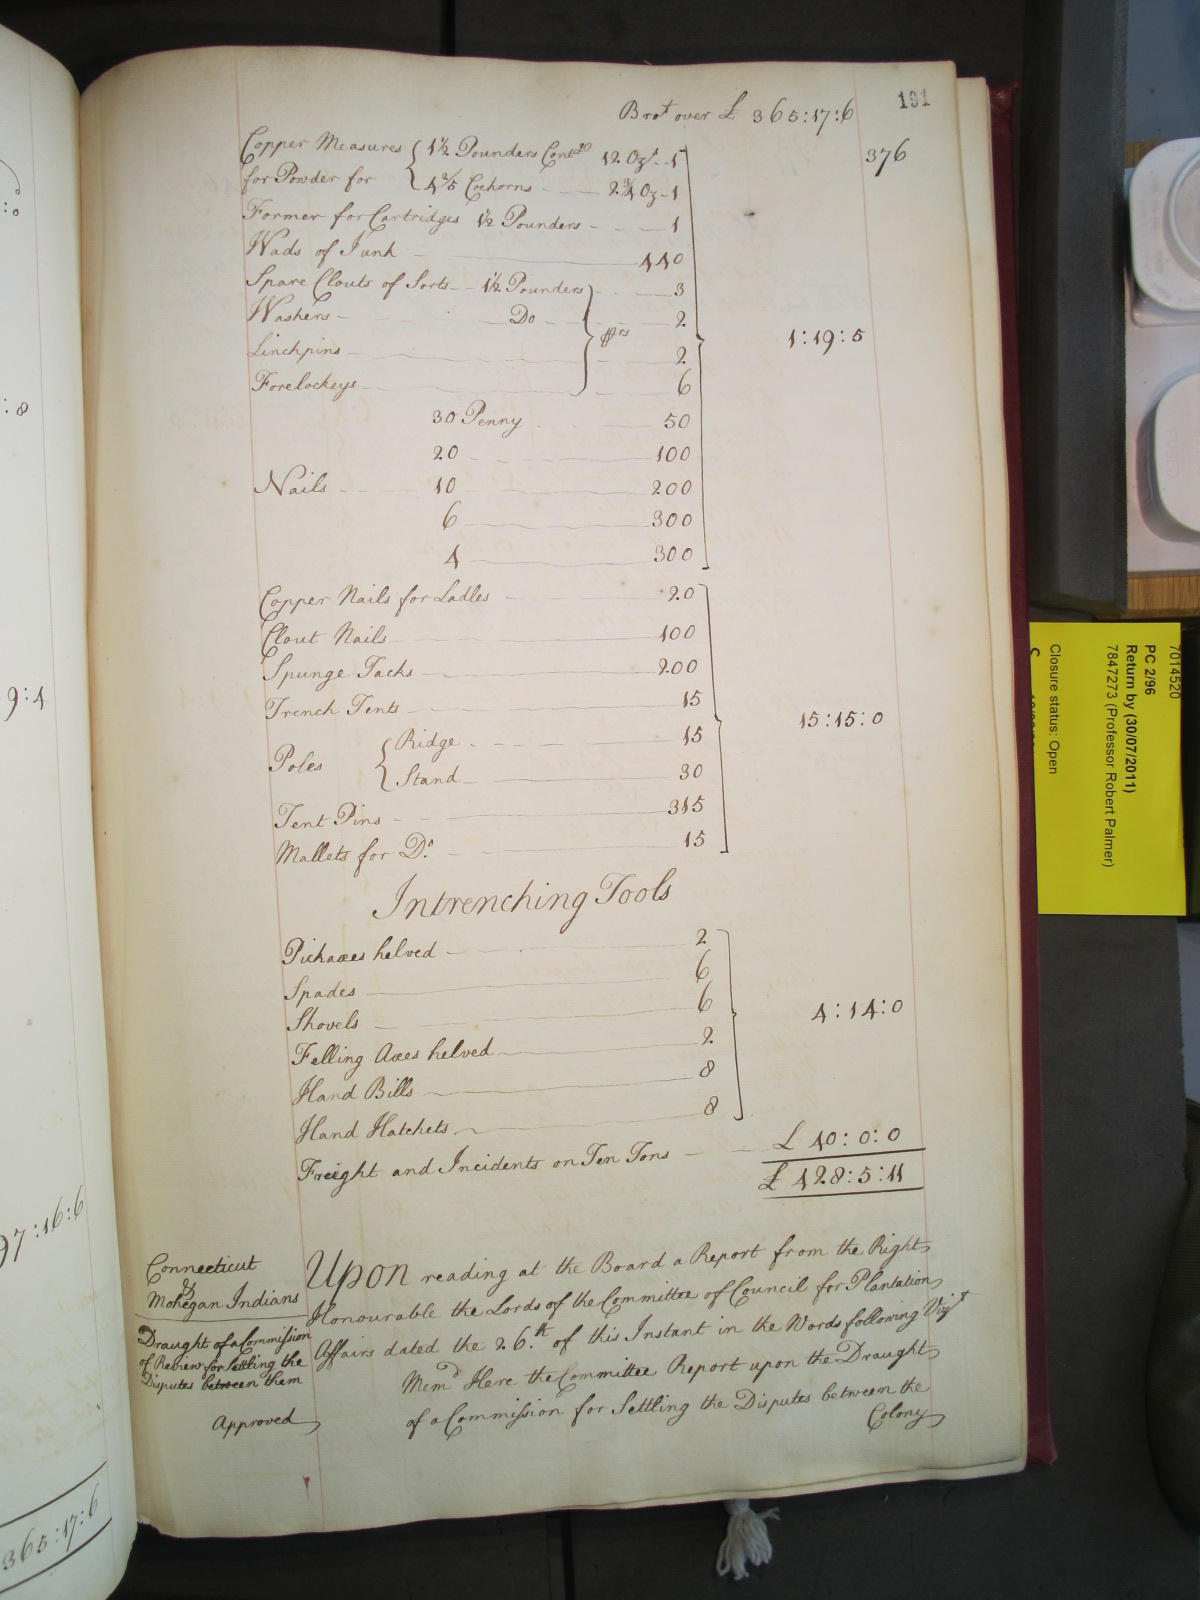 191
Bro.t over £ 365:17:6
376
Copper Measures { 1½ Pounders Cont.g 12 Oz.s - 1
for Powder for { 4 2/5 Coehorns - 2¾ Oz - 1
Former for Cartridges 1½ Pounders - 1
Wads of Junk - 440
Spare Clouts of Sorts - 1½ Pounders - 3
Washers - Do - 2
prs
Linchpins - 2
1:19:5
Forelockeys - 6
30 Penny 50
20 - 100
Nails - 10 - 200
6 - 300
4 - 300
Copper Nails for Ladles - 20
Clout Nails - 100
Spunge Tacks - 200
Trench Tents - 15
15:15:0
Poles { Ridge - 15
{ Stand - 30
Tent Pins - 315
Mallets for D.o - 15
Intrenching Tools
Pickaxes helved - 2
Spades - 6
Shovels - 6
4:14:0
Felling Axes helved - 2
Hand Bills - 8
Hand Hatchets - 8
Freight and Incidents on Ten Tons - £ 40:0:0
£ 428:5:11
Connecticut
&
Mohegan Indians
Draught of a Commission
of Review for settling the
Disputes between them
Approved
Upon reading at the Board a Report from the Right
Honourable the Lords of the Committee of Council for Plantation
Affairs dated the 26.th of this Instant in the Words following Viz.t
Mem.d Here the Committee Report upon the Draught
of a Commission for Settling the Disputes between the
Colony
:8
9:4
97:16:6
365:17:6
7014520
PC 2/96
Return by (30/07/2011)
7847273 (Professor Robert Palmer)
Closure status: Open